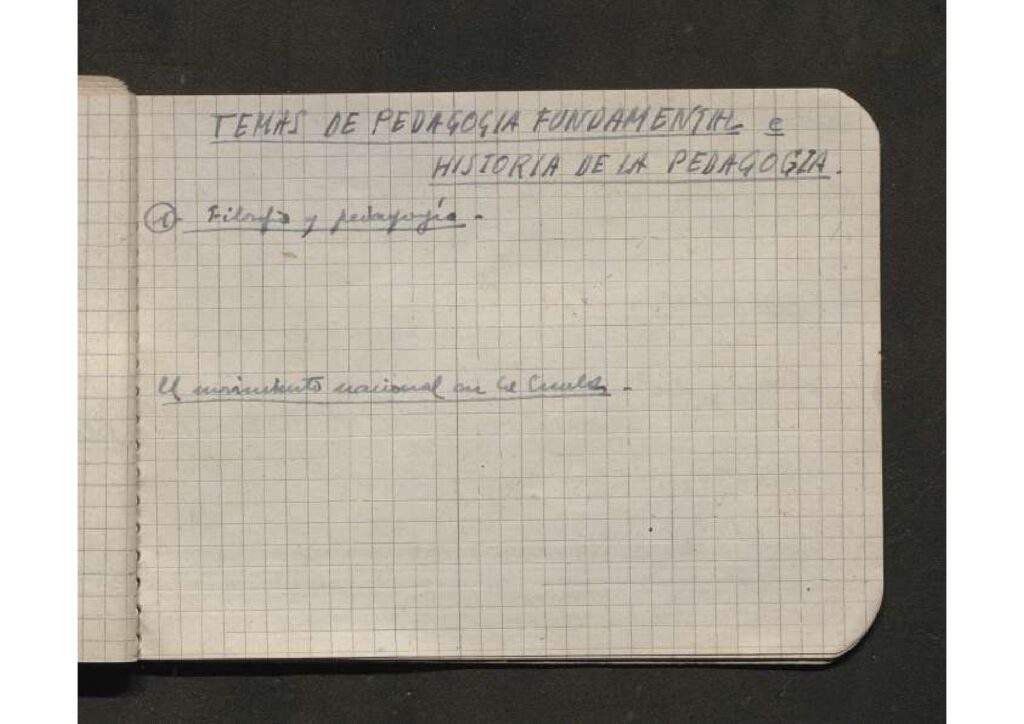 TEMAS DE PEDAGOGIA FUNDAMENTAL e
HISTORIA DE LA PEDAGOGIA.
1. Filosofia y pedagogía.-
El movimiento nacional en la Escuela.-